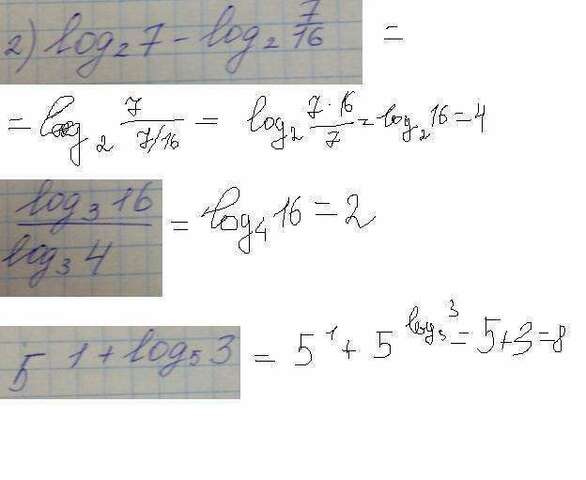 2) log₂7 - log₂ 7/16 =
= log₂ 7/(7/16) = log₂ (7·16)/7 = log₂16 = 4
log₃16/log₃4 = log₄16 = 2
5^(1+log₅3) = 5¹ + 5^(log₅3) = 5+3=8